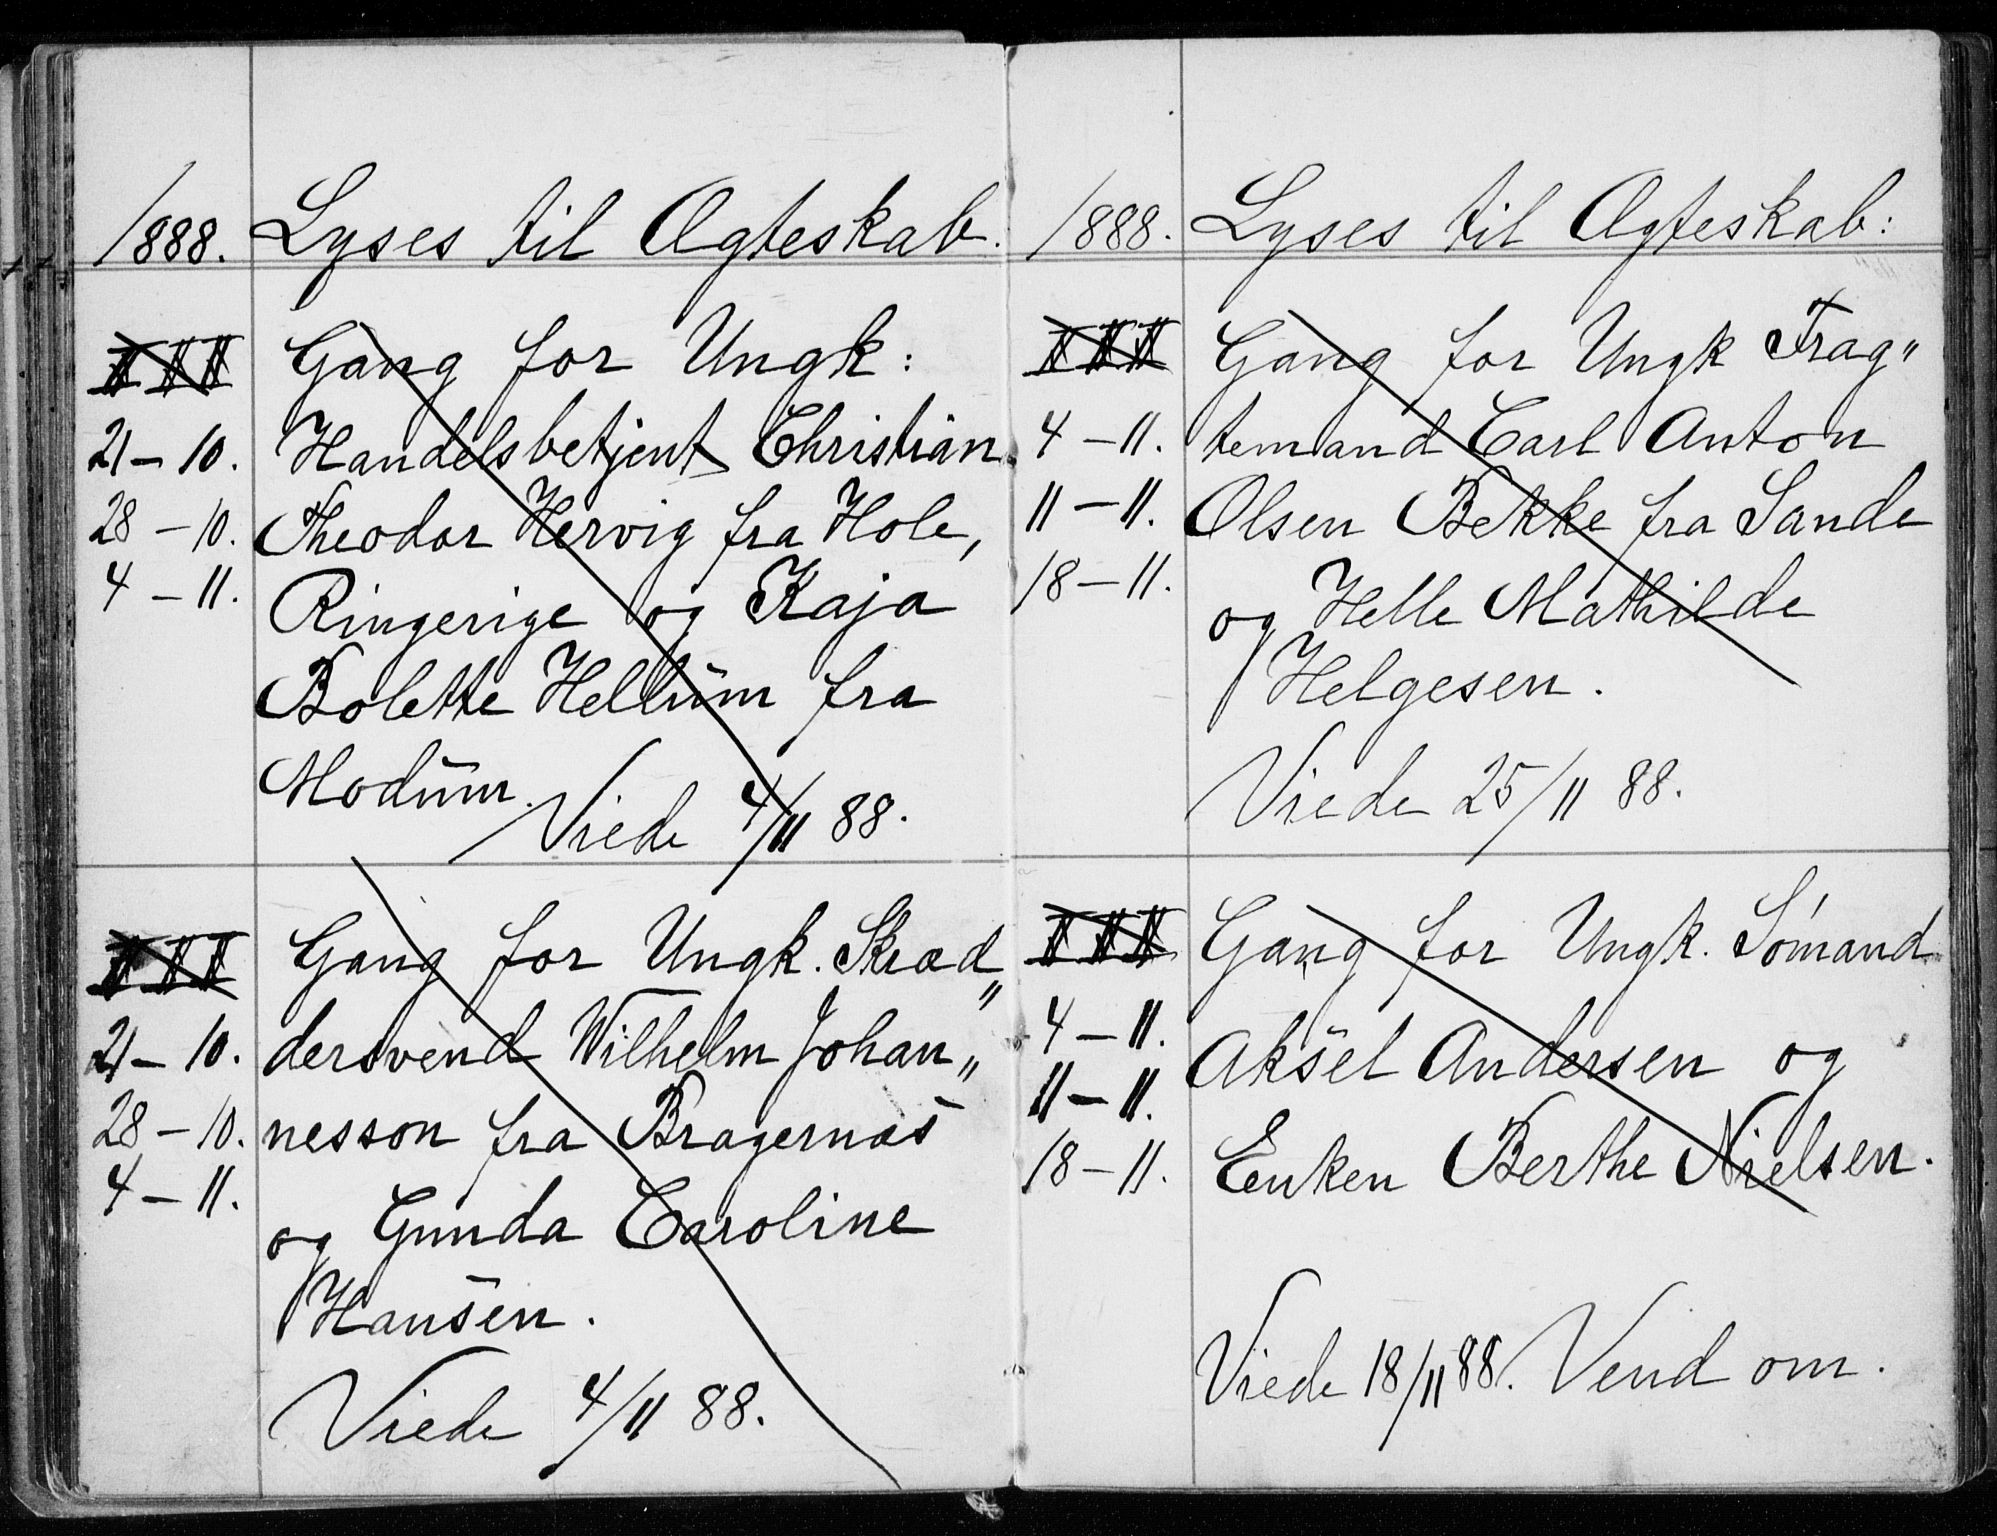 1888. Lyses til Ægteskab.
III Gang for Ungk:
21 - 10. Handelsbetjent Christian
28 - 10. Theodor Hervig fra Hole,
4 - 11. Ringerige og Kaja
Bolette Hellum fra
Modum.
Viede 4/11 88.
III Gang for Ungk. Skræd„
21 - 10. dersvend Wilhelm Johan„
28 - 10. nesson fra Bragernæs
4 - 11. og Gunda Caroline
Hansen.
Viede 4/11 88.
1888. Lyses til Ægteskab:
III Gang for Ungk Frag„
4 - 11. temand Carl Anton
11 - 11. Olsen Bekke fra Sande
18 - 11. og Helle Mathilde
Helgesen.
Viede 25/11 88.
III Gang for Ungk. Sómand
4 - 11. Aksel Andersen og
11 - 11.
18 - 11. Enken Berthe Nielsen.
Viede 18/11 88. Vend om.